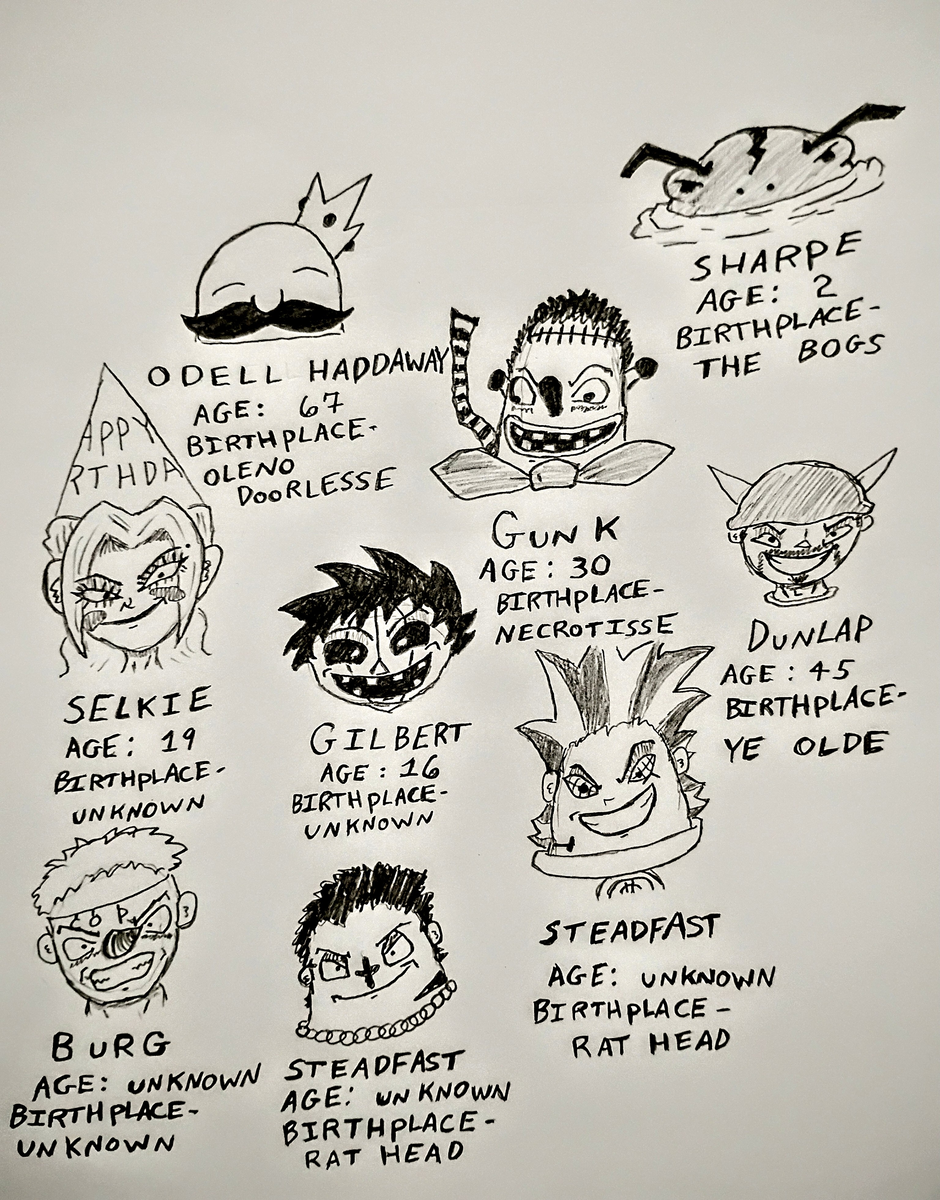 SHARPE
AGE: 2
BIRTHPLACE-
THE BOGS
ODELL HADDAWAY
AGE: 67
BIRTHPLACE-
OLENO
DOORLESSE
APPY
RTHDA
GUNK
AGE: 30
BIRTHPLACE-
NECROTISSE
DUNLAP
AGE: 45
BIRTHPLACE-
YE OLDE
SELKIE
AGE: 19
BIRTHPLACE-
UNKNOWN
GILBERT
AGE: 16
BIRTHPLACE-
UNKNOWN
STEADFAST
AGE: UNKNOWN
BIRTHPLACE-
RAT HEAD
BURG
AGE: UNKNOWN
BIRTHPLACE-
UNKNOWN
STEADFAST
AGE: UNKNOWN
BIRTHPLACE-
RAT HEAD